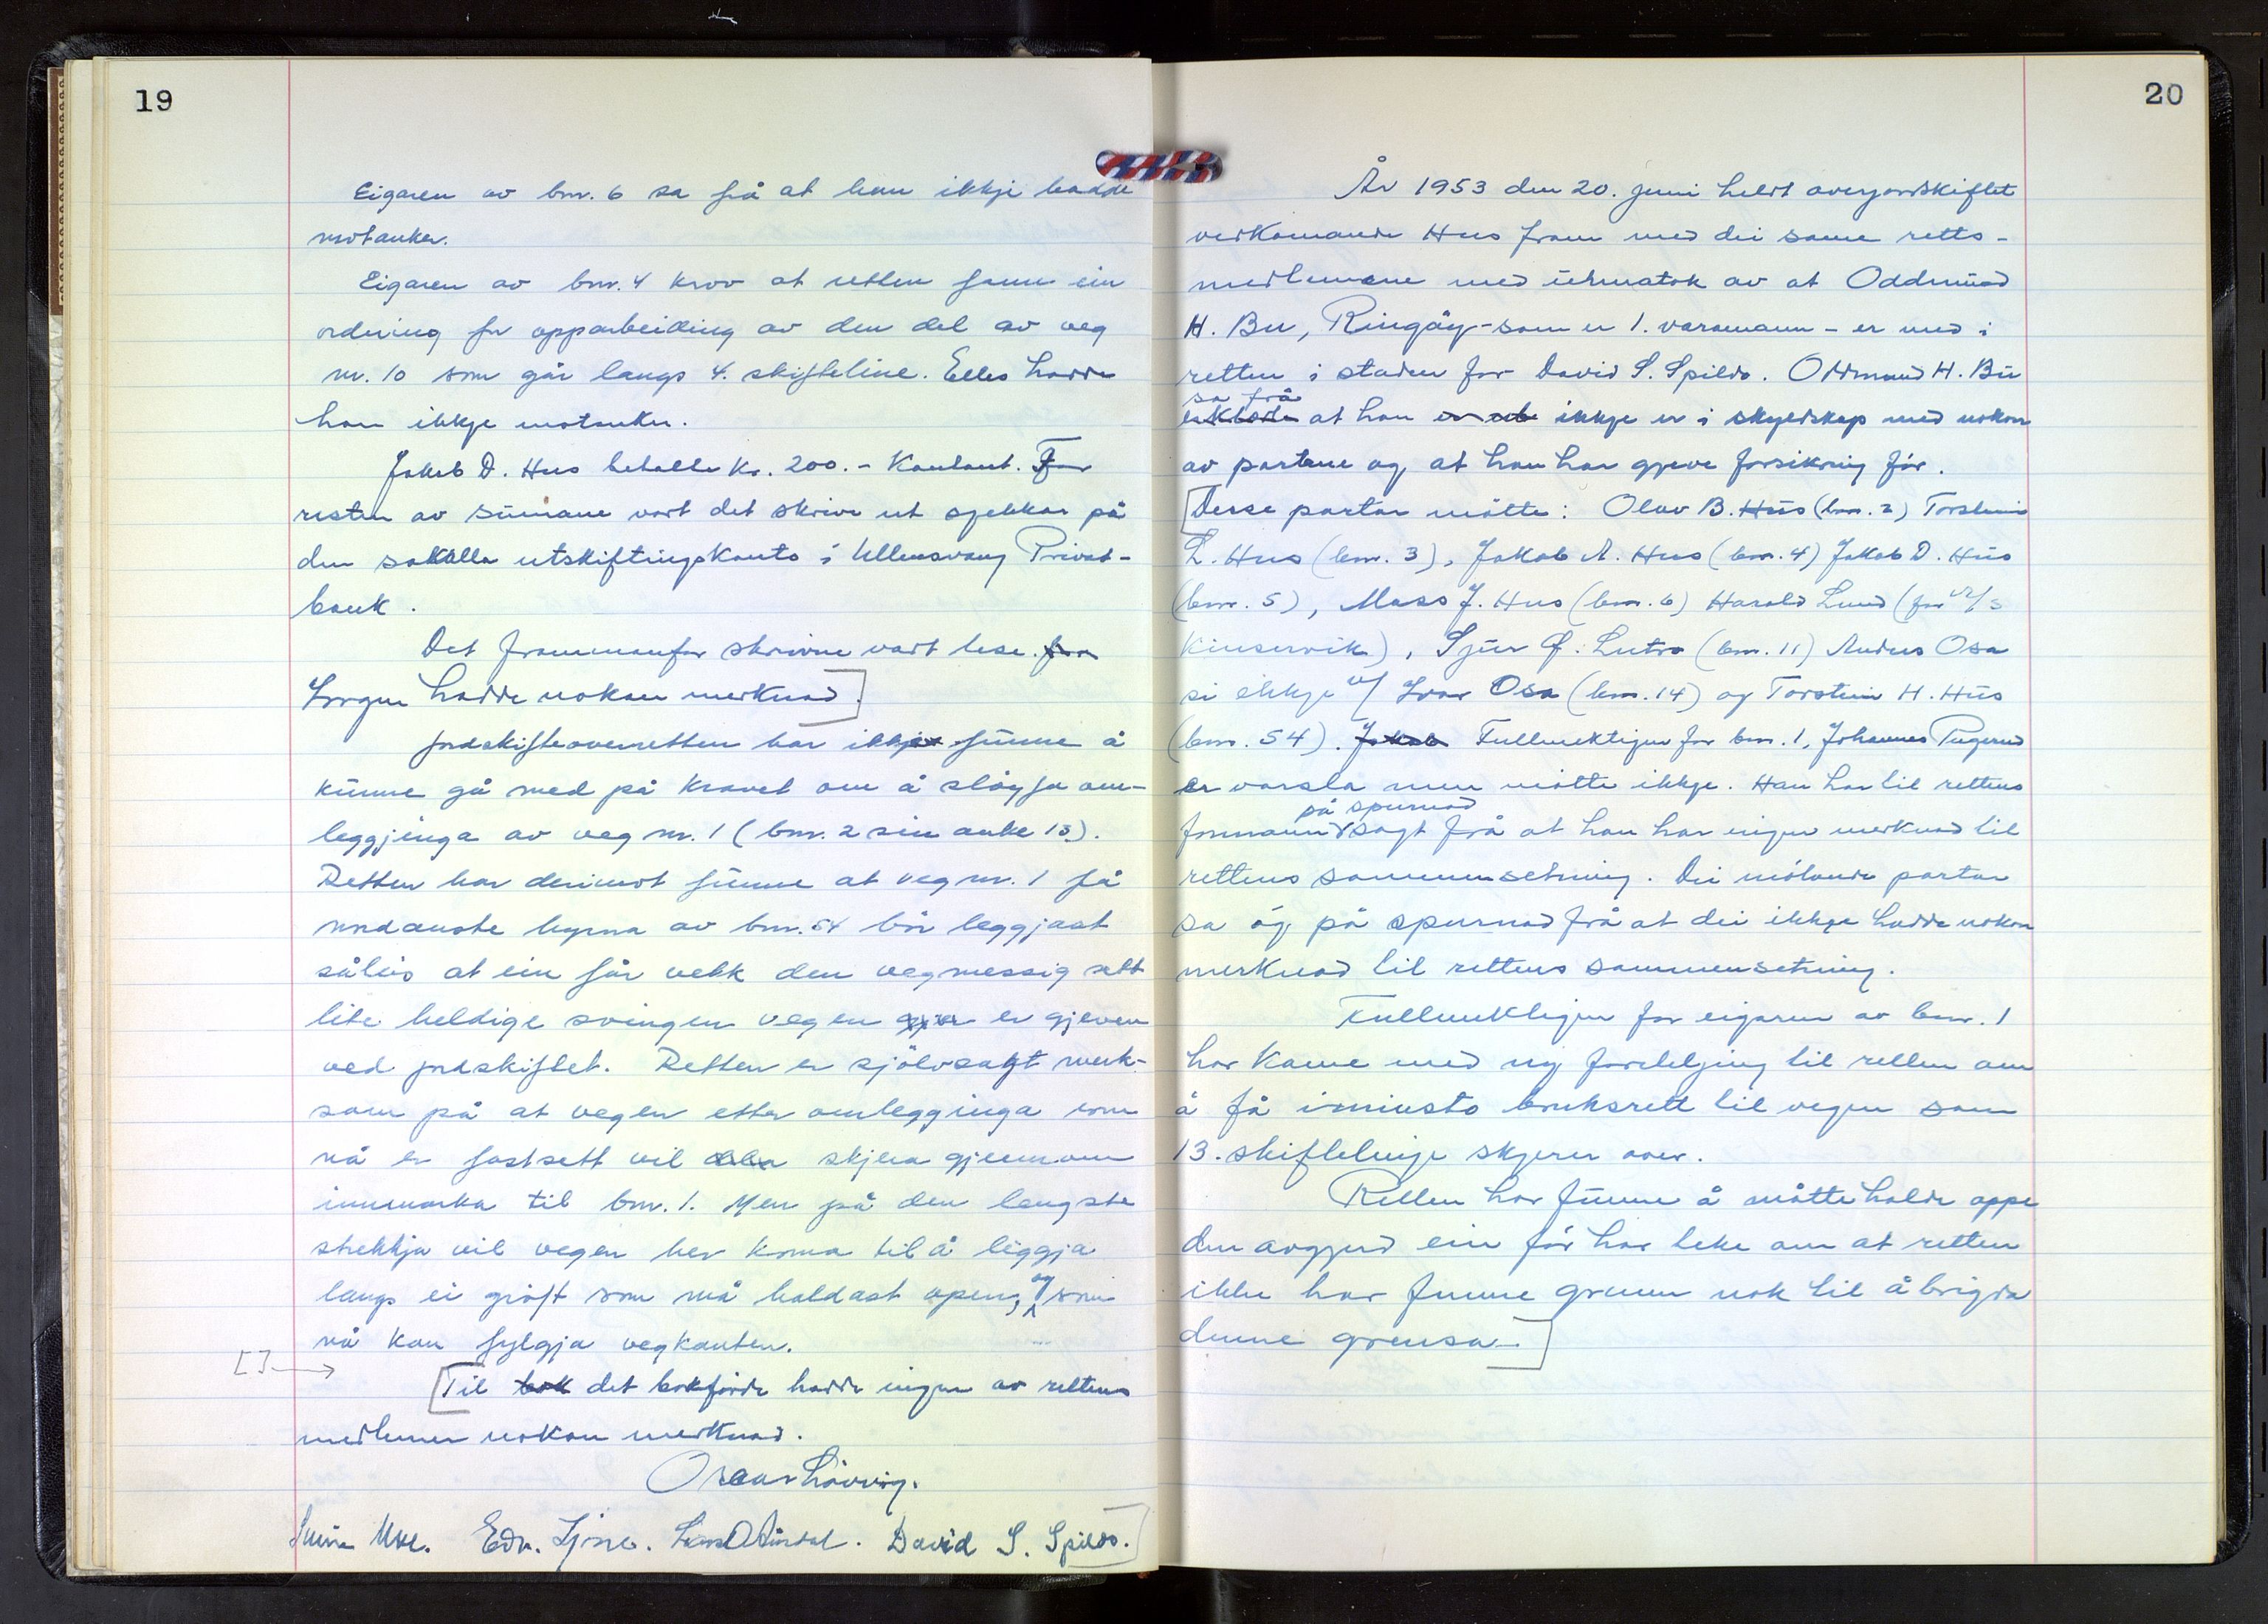 19
Eigaren av bnr. 6 sa frå at han ikkje hadde
motanker.
Eigaren av bnr. 4 krov at retten fann ein
ordning for opparbeiding av den del av veg
nr. 10 som går langs 4. skifteline. Elles hadde
han ikkje motanker.
Jakob D. Hus betalte kr. 200.- kontant. For
resten av sumane vart det skrive ut sjekkar på
den sokalla utskiftingskonto i Ullensvang Privat-
bank.
Det frammanfor skrivne vart lese. fra
Ingen hadde nokon merknad].
Jordskifteoverretten har ikkje funne å
kunne gå med på kravet om å sløyfa om-
leggjinga av veg nr. 1 (bnr. 2 sin anke 13).
Retten har derimot funne at veg nr. 1 på
nordauste hyrna av bnr. 54 bør leggjast
såleis at ein får vekk den vegmessig sett
lite heldige svingen vegen gjer er gjeven
ved jordskiftet. Retten er sjølvsagt merk-
sam på at vegen etter omlegginga som
nå er fastsett vil skjera gjennom
innmarka til bnr. 1. Men på den lengste
strekkja vil vegen her koma til å liggja
langs ei grøft som må haldast open, og som
nå kan fylgja vegkanten.
[ ] →
[Til bok det bokførde hadde ingen av rettens
medlemer nokon merknad.
Oscar Løvvig.
Edv. Ljone. David S. Spildo.]
20
År 1953 den 20. juni heldt overjordskiftet
vedkomande Hus fram med dei same retts-
medlemene med unnatak av at Oddmund
H. Bu, Ringøy - som er 1. varamann - er med i
retten i staden for David S. Spildo. Oddmund H. Bu
sa frå
erklærte at han ikkje er i skyldskap med nokon
av partane og at han har gjeve forsikring før.
[Desse partar møtte: Olav B. Hus (bnr. 2) Torstein
L. Hus (bnr. 3), Jakob A. Hus (bnr. 4) Jakob D. Hus
(bnr. 5), Mass J. Hus (bnr. 6) Harald Lund (for
Kinservik), Sjur Lutro (bnr. 11) Anders Osa
si ekkje v/ Ivar Osa (bnr. 14) og Torstein H. Hus
(bnr. 54). Jakob Fullmektigen for bnr. 1, Johannes
er varsla men møtte ikkje. Han har til rettens
på spurnad
formann sagt frå at han har ingen merknad til
rettens sammensetning. Dei møtande partar
sa óg på spurnad frå at dei ikkje hadde nokon
merknad til rettens sammensetning.
Fullmektigen for eigaren av bnr. 1
har kome med ny fortelging til retten om
å få iminsto bruksrett til vegen som
13. skiftelinje skjerer over.
Retten har funne å måtte halde oppe
den avgjerd ein før har teke om at retten
ikke har funne grunn nok til å brigda
denne grensa.]